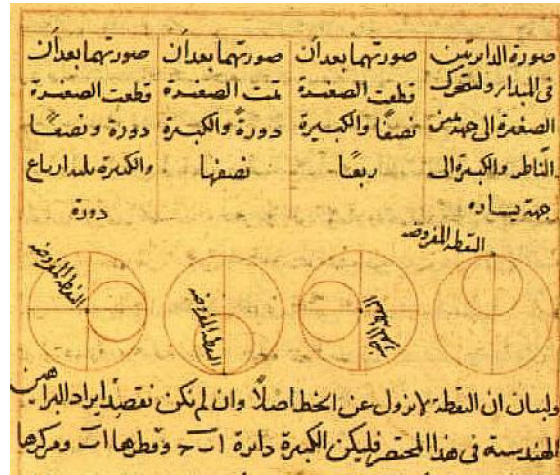 صورة الدايرتين
فى المبدا ولتتحرك
الصغيرة الى جهة يمين
الناظر والكبيرة الى
جهة يساره
صورتهما بعد ان
قطعت الصغيرة
نصفًا والكبيرة
ربعًا
صورتهما بعد ان
تمت الصغيرة
دورةً والكبيرة
نصفها
صورتهما بعد ان
قطعت الصغيرة
دورة ونصفًا
والكبيرة ثلثه ارباع
دورة
النقطة المفروضه
النقطة المفروضه
النقطة المفروضه
النقطة المفروضه
ولبيان ان النقطة لا تزول عن الخط اصلاً وان لم نكن نقصد ايراد البراهين
الهندسية فى هذا المختصر فليكن الكبيرة دائرة ا ب ج وقطرها ا ب ومركزها